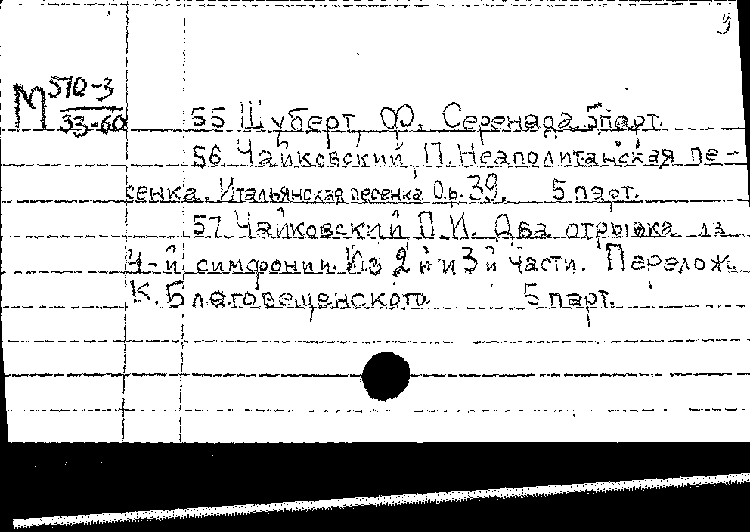 9
М 570-3
33-60
55 Шуберт, Ф. Серенада 5парт.
56. Чайковский, П. Неаполитанская пе-
сенка. Итальянская песенка Ор. 39. 5 парт.
57 Чайковский П.И. Два отрывка из
4-й симфонии. Из 2й и 3й части. Перелож.
К. Благовещенского 5 парт.